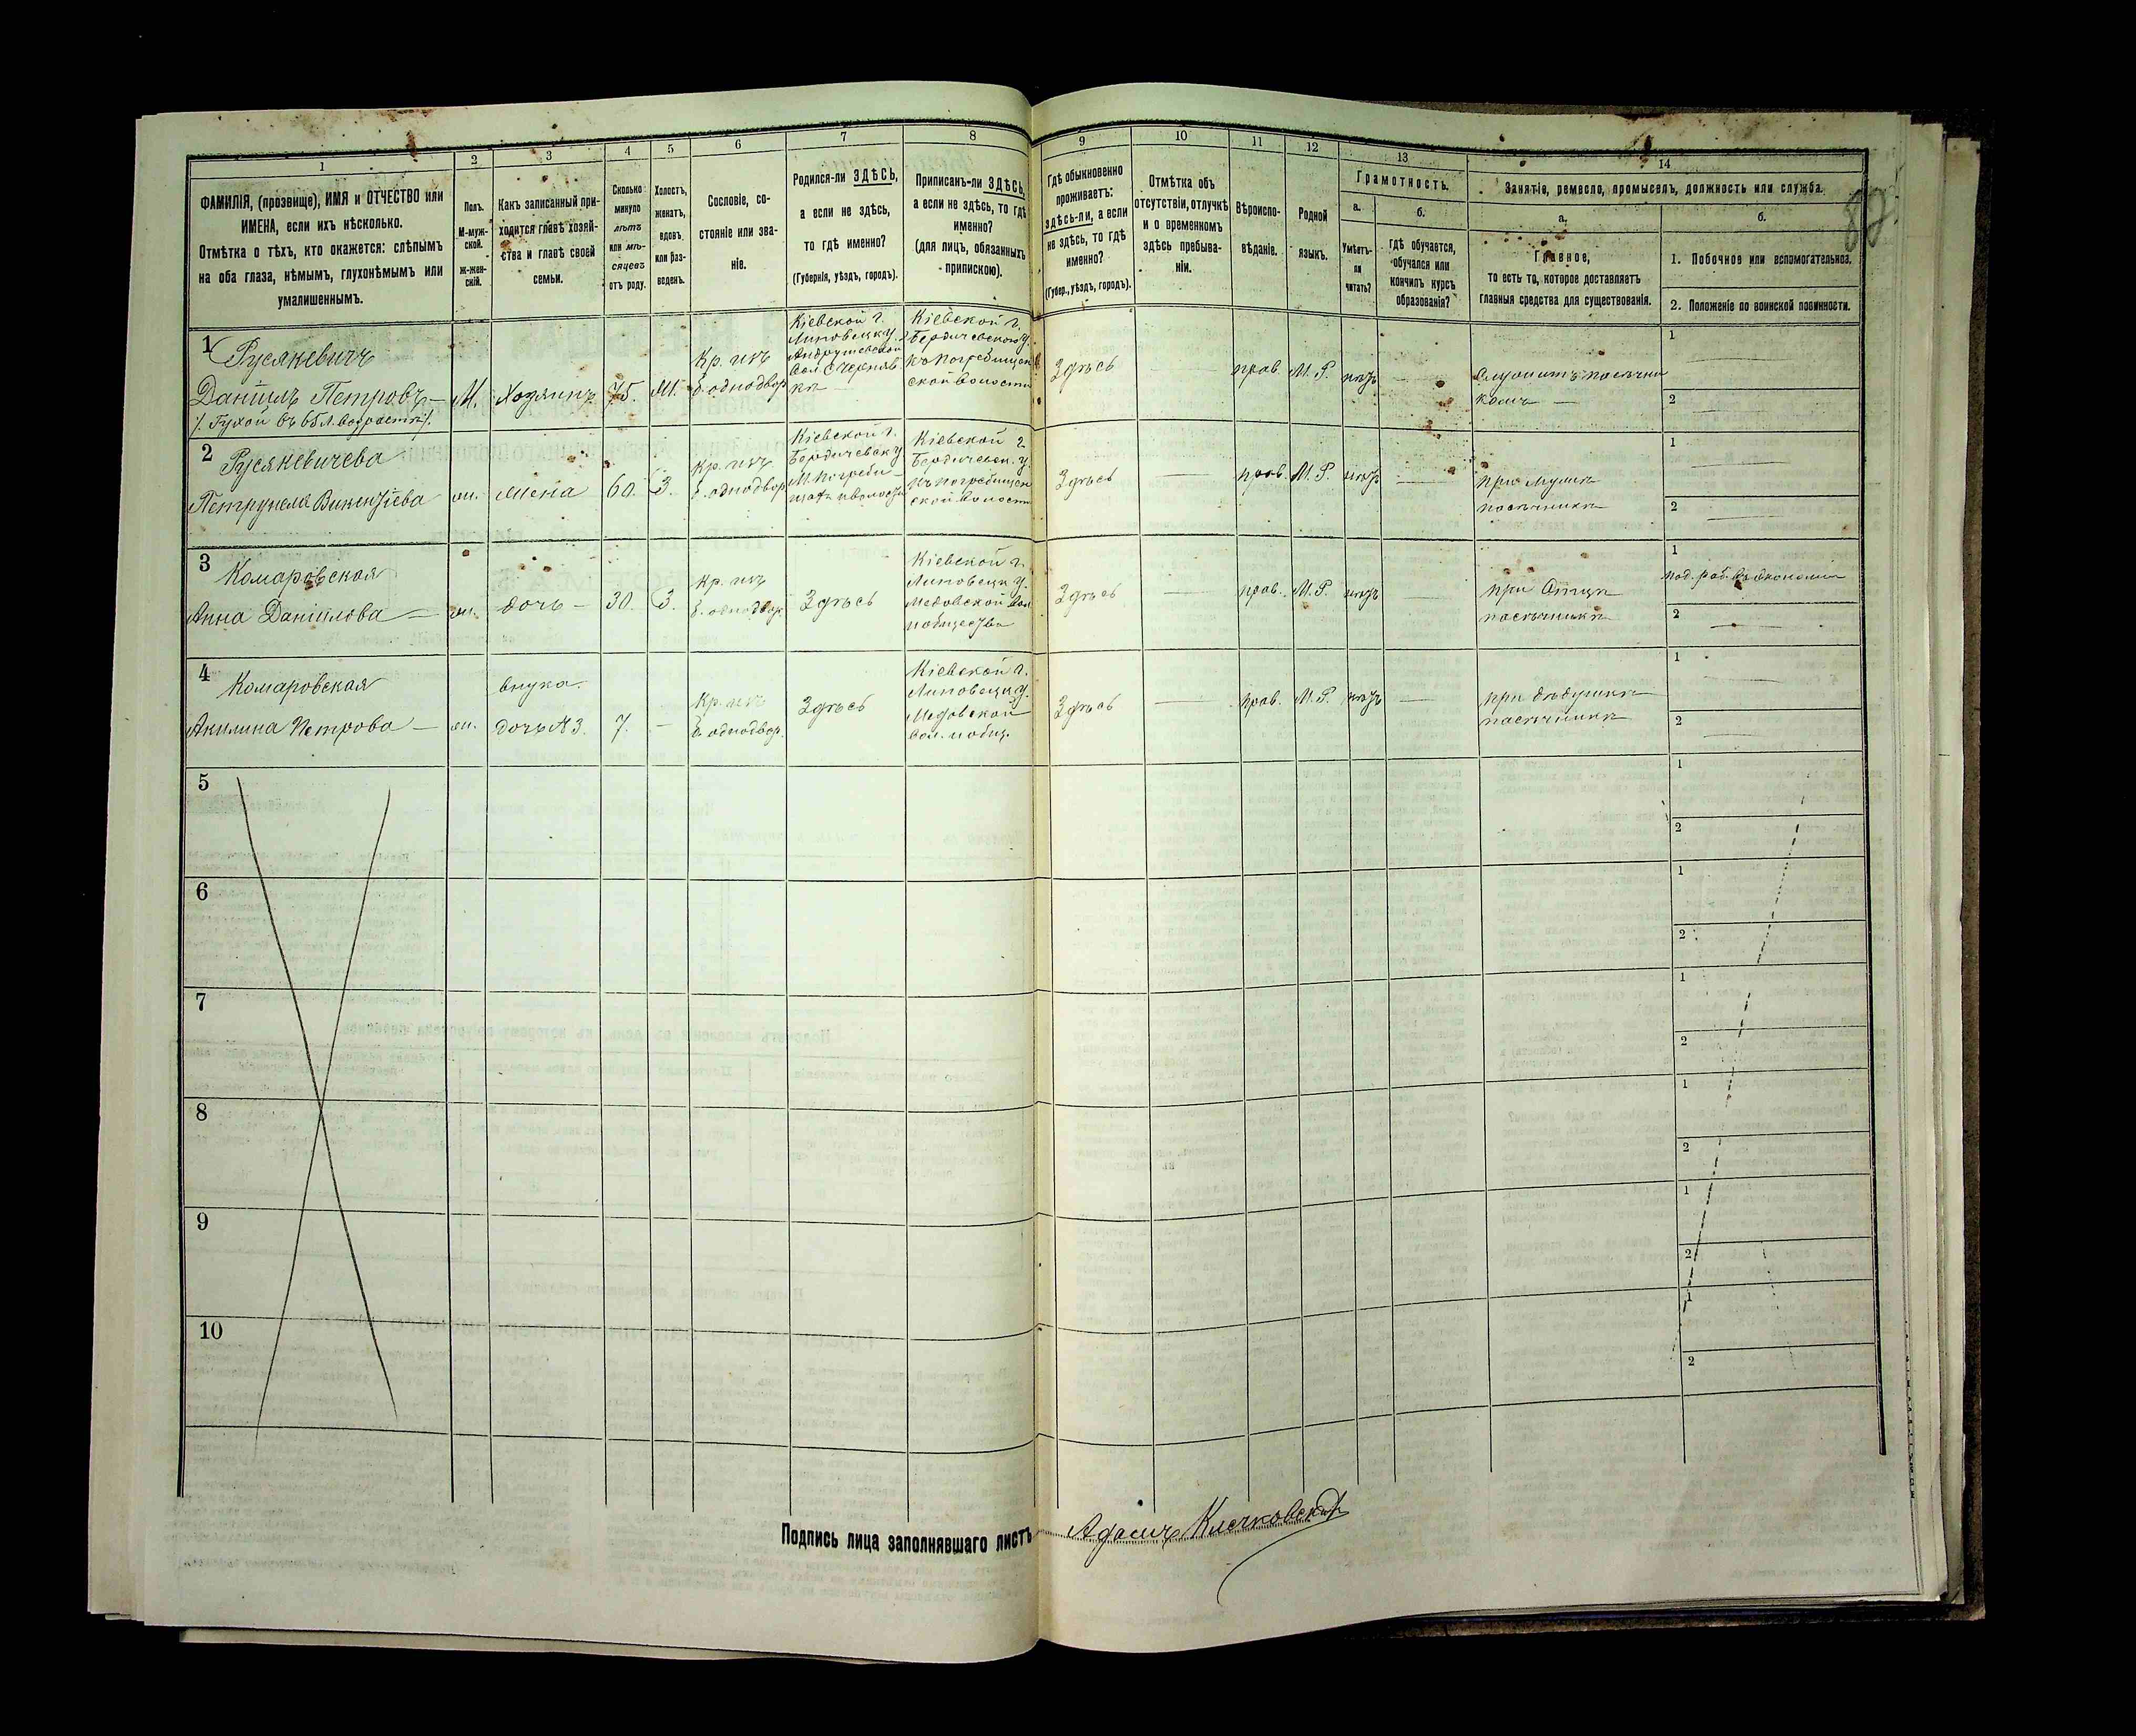 1
2
3
4
5
6
7
8
9
10
11
12
13
14
ФАМИЛІЯ, (прозвище), ИМЯ и ОТЧЕСТВО или
ИМЕНА, если ихъ нѣсколько.
Отмѣтка о тѣхъ, кто окажется: слѣпымъ
на оба глаза, нѣмымъ, глухонѣмымъ или
умалишеннымъ.
Полъ.
М-муж-
ской.
ж-жен-
скій.
Какъ записанный при-
ходится главѣ хозяй-
ства и главѣ своей
семьи.
Сколько
минуло
лѣтъ
или мѣ-
сяцевъ
отъ роду.
Холостъ,
женатъ,
вдовъ
или раз-
веденъ.
Сословіе, со-
стояніе или зва-
ніе.
Родился-ли ЗДѢСЬ,
а если не здѣсь,
то гдѣ именно?
(Губернія, уѣздъ, городъ).
Приписанъ-ли ЗДѢСЬ,
а если не здѣсь, то гдѣ
именно?
(для лицъ, обязанныхъ
припискою).
Гдѣ обыкновенно
проживаетъ:
здѣсь-ли, а если
не здѣсь, то гдѣ
именно?
(Губер., уѣздъ, городъ).
Отмѣтка объ
отсутствіи, отлучкѣ
и о временномъ
здѣсь пребыва-
ніи.
Вѣроиспо-
вѣданіе.
Родной
языкъ.
Грамотность.
а.
Умѣетъ-
ли
читать?
б.
Гдѣ обучается,
обучался или
кончилъ курсъ
образованія?
Занятіе, ремесло, промыселъ, должность или служба.
а.
Главное,
то есть то, которое доставляетъ
главныя средства для существованія.
б.
1. Побочное или вспомогательное.
2. Положеніе по воинской повинности.
1
Русякевичъ
Даніилъ Петровъ
М.
Хозяинъ
75.
Ж.
Кр. изъ
б. однодвор
Кіевской г.
Липовецк у.
Кіевской г.
Бердичевского у.
Здѣсь
прав.
М. Р.
нѣтъ
1
2
2
Русякевичева
Петрунеля Викентіева
ж.
жена
60.
З.
Кр. изъ
б. однодвор
Кіевской г.
Бердичевск у
Кіевской г.
Бердичевск. у.
Здѣсь
прав.
М. Р.
нѣтъ
при Мужѣ
пасѣчникѣ
1
2
3
Комаровская
Анна Даніилова
ж.
дочь
30.
З.
Кр. изъ
б. однодвор.
Здѣсь
Кіевской г.
Липовецк у.
Медовской вол
и общества
Здѣсь
прав.
М. Р.
нѣтъ
при Отцѣ
пасѣчникѣ
1
2
4
Комаровская
Акилина Петрова
ж.
внука.
дочь №3.
7.
Кр. изъ
б. однодвор.
Здѣсь
Кіевской г.
Липовецк у.
Медовской
вол. и общ.
Здѣсь
прав.
М. Р.
нѣтъ
при дѣдушкѣ
пасѣчникѣ
1
2
5
1
2
6
1
2
7
1
2
8
1
2
9
1
2
10
1
2
Подпись лица заполнявшаго листъ
Адамъ Клечковскій